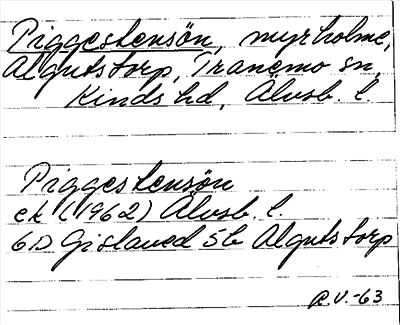 Piggestensön, myrholme,
Algutstorp, Tranemo sn,
Kinds hd, Älvsb. l.
Piggestensön
ek (1962) Älvsb. l.
6D Gislaved 5b Algutstorp
R.V.-63